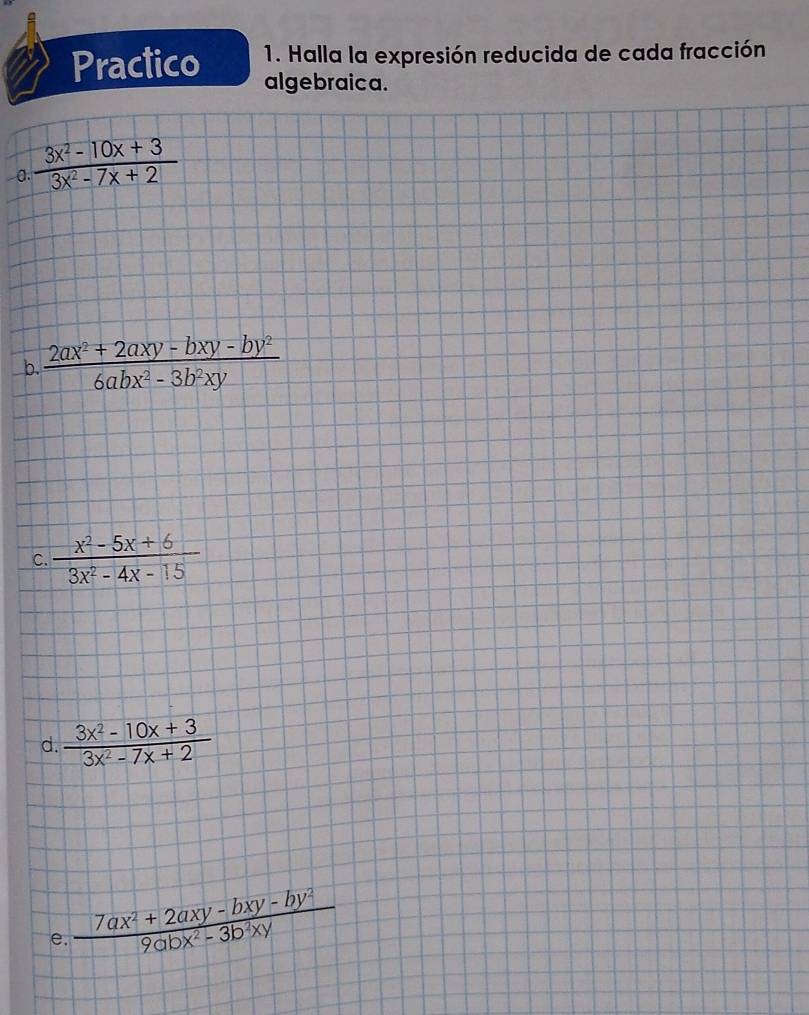 Practico
1. Halla la expresión reducida de cada fracción
algebraica.
a. 3x² - 10x + 3
3x² - 7x + 2
b. 2ax² + 2axy - bxy - by²
6abx² - 3b²xy
c. x² - 5x + 6
3x² - 4x - 15
d. 3x² - 10x + 3
3x² - 7x + 2
e. 7ax² + 2axy - bxy - by²
9abx² - 3b²xy